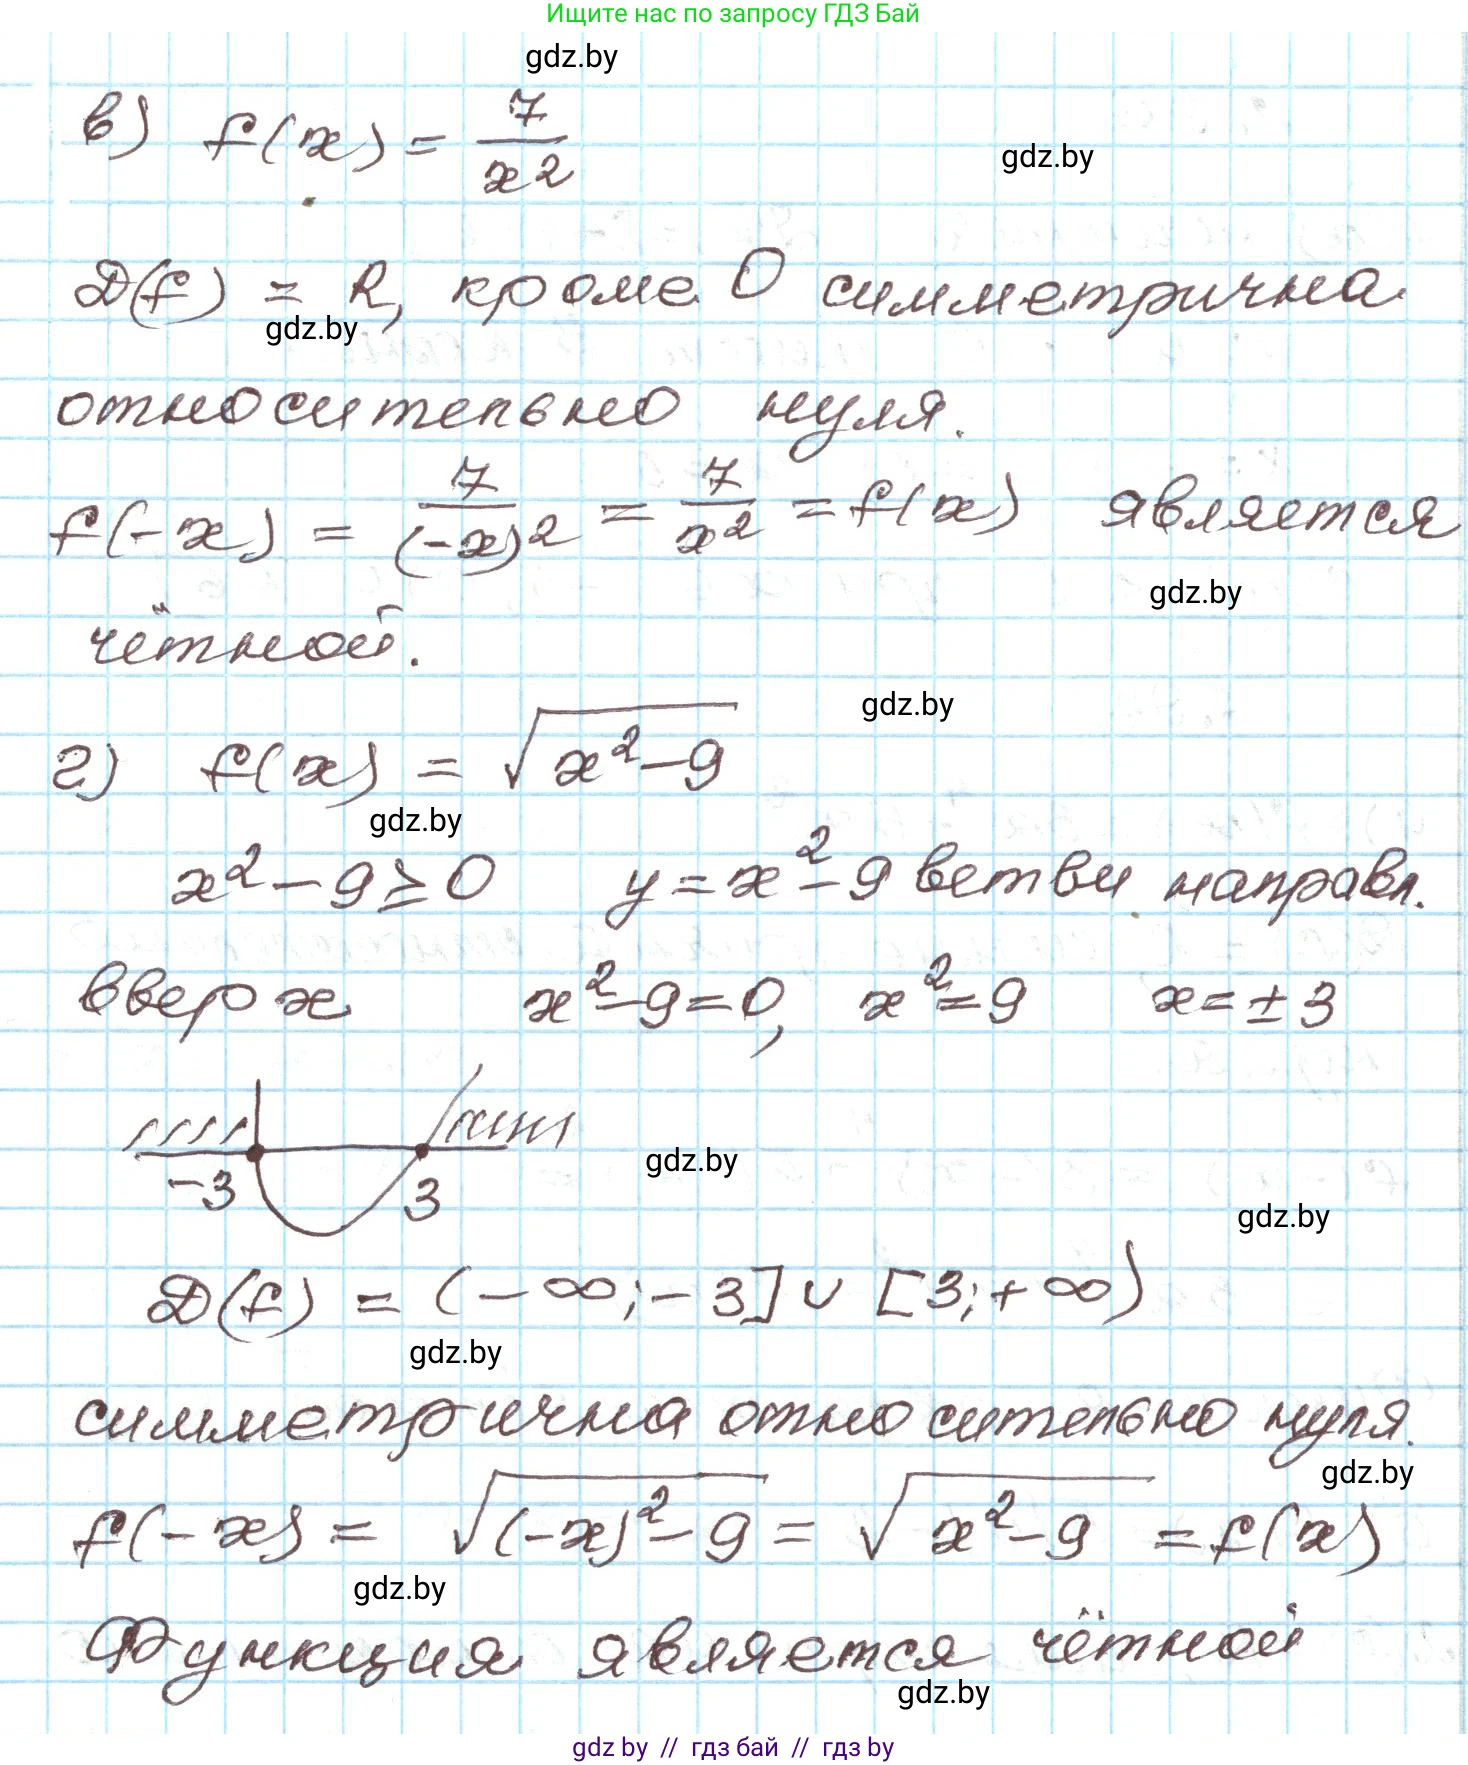 Ищите нас по запросу ГДЗ Бай
gdz.by
в) f(x) = 7/x²
gdz.by
D(f) = R, кроме 0 симметрична
gdz.by
относительно нуля.
f(-x) = 7/(-x)² = 7/x² = f(x) является
gdz.by
чётной.
gdz.by
г) f(x) = √(x²-9)
gdz.by
x²-9≥0 y=x²-9 ветви направл.
вверх x²-9=0, x²=9 x=±3
gdz.by
-3 3
gdz.by
D(f) = (-∞;-3]∪[3;+∞)
gdz.by
симметрична относительно нуля.
gdz.by
f(-x) = √((-x)²-9) = √(x²-9) = f(x)
gdz.by
Функция является чётной
gdz.by
gdz by // гдз бай // гдз by